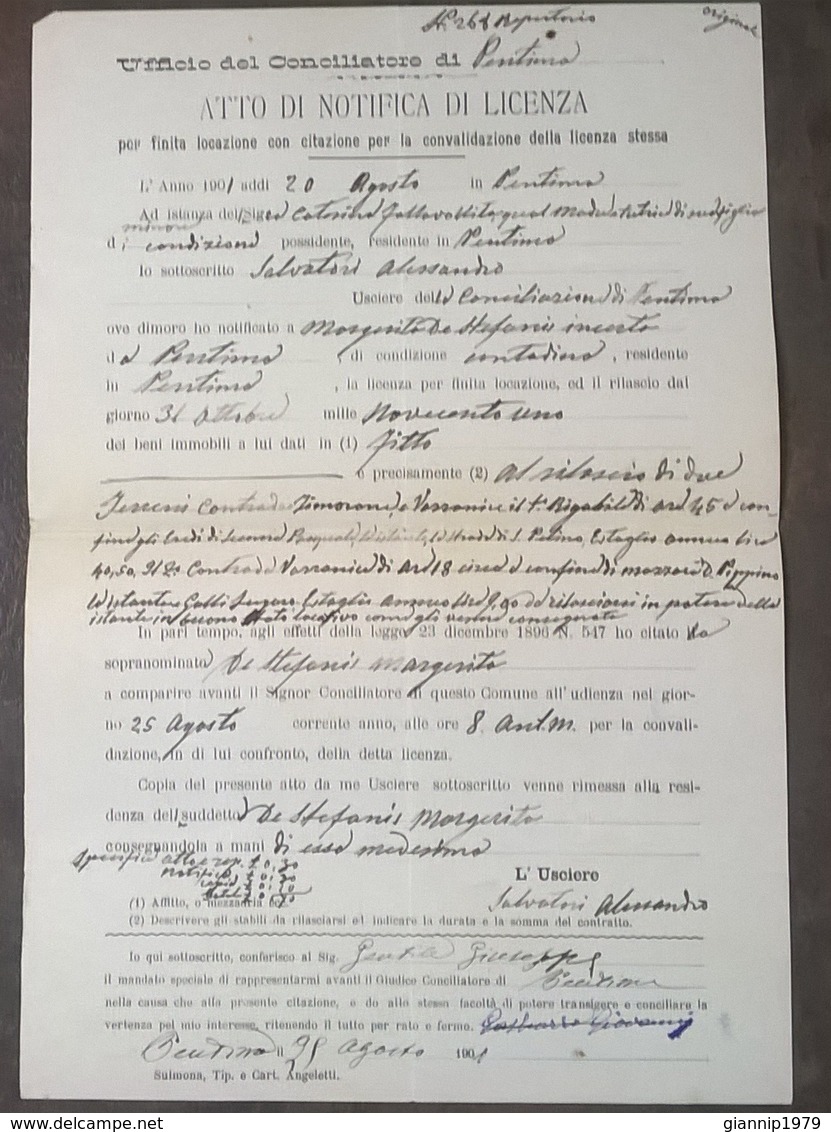 N. 268 Repertorio
originale
Ufficio del Conciliatore di Pentima
ATTO DI NOTIFICA DI LICENZA
per finita locazione con citazione per la convalidazione della licenza stessa
L'Anno 1901 addi 20 Agosto in Pentima
Ad istanza del Sig. Caterina qual Madre di
minore
di condizione possidente, residente in Pentima
Io sottoscritto Salvatori Alessandro
Usciere della Conciliazione di Pentima
ove dimoro ho notificato a Margerita De Stefanis
da Pentima, di condizione contadina, residente
in Pentima, la licenza per finita locazione, ed il rilascio dal
giorno 31 Ottobre mille Novecento uno
dei beni immobili a lui dati in (1) Fitto
e precisamente (2) al rilascio di due
Terreni Contrada e Vassanice il 1° Rigabile di are 45 a con-
fine gli Eredi di Pasquale, la strada di S. Pelino, Estaglio annuo lire
40,50, Il 2° Contrada Vassanice di are 18 circa a confine di Peppino
la istante e Gatti Estaglio annuo lire 9,00 da rilasciarsi in potere della
istante in buono stato locativo come gli venne consegnato
In pari tempo, agli effetti della legge 23 dicembre 1896 N. 547 ho citato la
sopranominata De Stefanis Margerita
a comparire avanti il Signor Conciliatore di questo Comune all'udienza nel gior-
no 25 Agosto corrente anno, alle ore 8 ant.m. per la convali-
dazione, in di lui confronto, della detta licenza.
Copia del presente atto da me Usciere sottoscritto venne rimessa alla resi-
denza del suddetto De Stefanis Margerita
consegnandola a mani di essa medesima
Specifica atto e rep. £ 0,30
notifica
copia
Totale
L' Usciere
Salvatori Alessandro
(1) Affitto, o mezzadria ecc.
(2) Descrivere gli stabili da rilasciarsi ed indicare la durata e la somma del contratto.
Io qui sottoscritto, conferisco al Sig. Gentile Giuseppe
il mandato speciale di rappresentarmi avanti il Giudice Conciliatore di Pentima
nella causa che alla presente citazione, e do allo stesso facoltà di potere transigere e conciliare la
vertenza pel mio interesse, ritenendo il tutto per rato e fermo. Giovanni
Pentima 25 agosto 1901
Sulmona, Tip. e Cart. Angeletti.
giannip1979